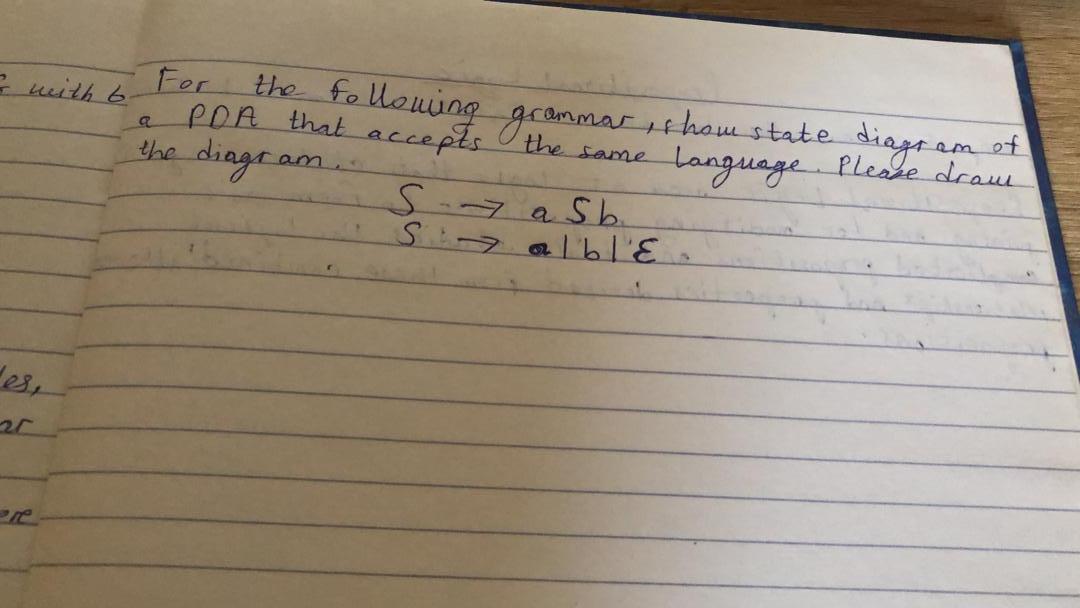 with 6
For the following grammar, show state diagram of
a PDA that accepts the same language. Please draw
the diagram.
S → a S b
S → a | b | ε.
les,
ar
ere